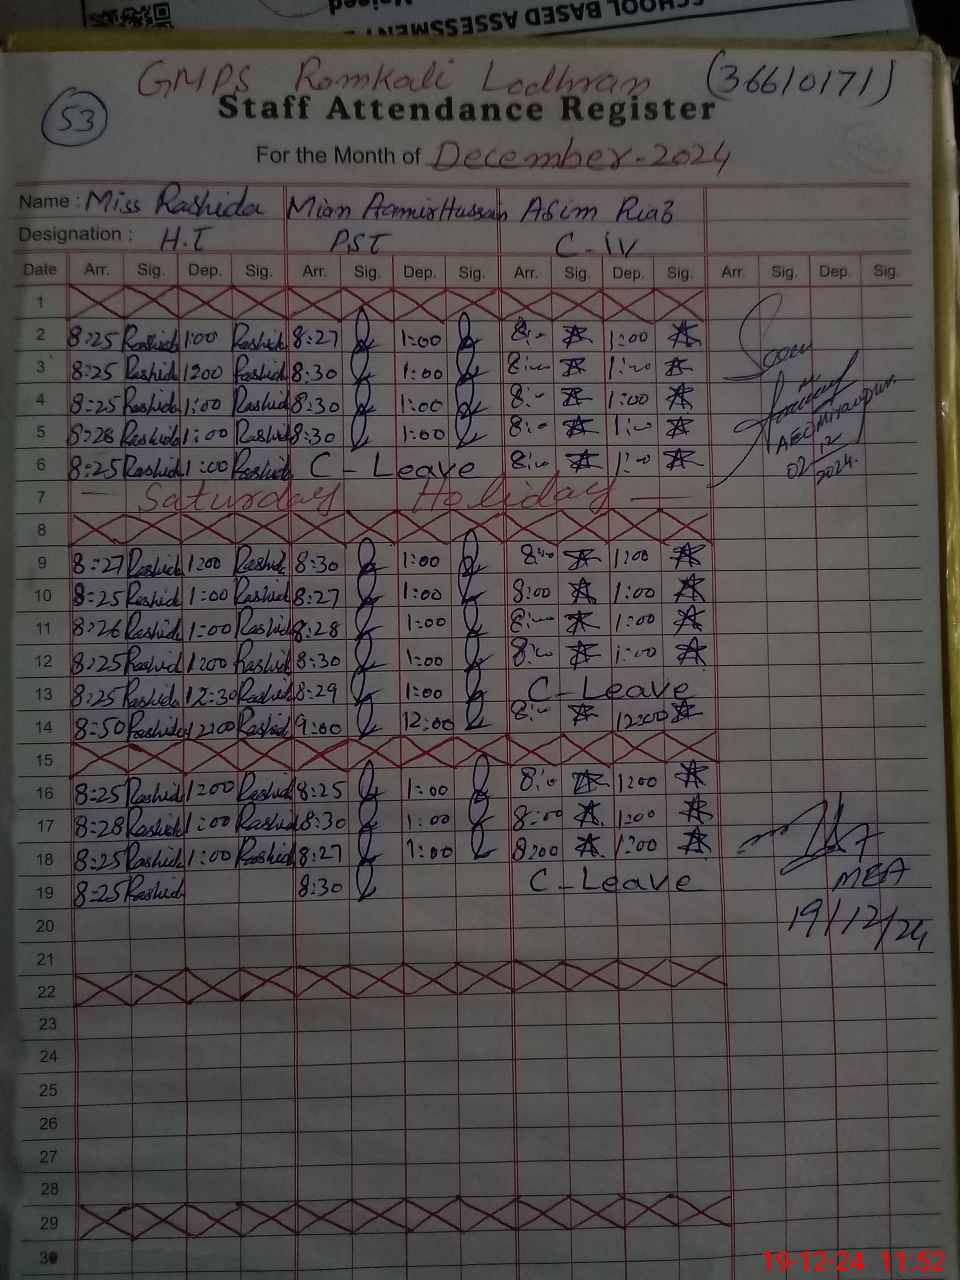 SCHOOL BASED ASSESSMENT
GMPS Ramkali Lodhran (36610171)
53
Staff Attendance Register
For the Month of December-2024
Name : Miss Rashida Mian Aamir Hussain Asim Riaz
Designation : H.T PST C-iv
Date Arr. Sig. Dep. Sig. Arr. Sig. Dep. Sig. Arr. Sig. Dep. Sig. Arr. Sig. Dep. Sig.
1
2 8:25 Rashid 1:00 Rashid 8:27 1:00 8:00 1:00
3 8:25 Rashid 1:00 Rashid 8:30 1:00 8:00 1:00
4 8:25 Rashid 1:00 Rashid 8:30 1:00 8:00 1:00
5 8:28 Rashid 1:00 Rashid 8:30 1:00 8:00 1:00
6 8:25 Rashid 1:00 Rashid C-Leave 8:00 1:00
02/12/2024.
7 — Saturday Holiday —
8
9 8:27 Rashid 1:00 Rashid 8:30 1:00 8:00 1:00
10 8:25 Rashid 1:00 Rashid 8:27 1:00 8:00 1:00
11 8:26 Rashid 1:00 Rashid 8:28 1:00 8:00 1:00
12 8:25 Rashid 1:00 Rashid 8:30 1:00 8:00 1:00
13 8:25 Rashid 12:30 Rashid 8:29 1:00 C-Leave
14 8:50 Rashid 12:00 Rashid 9:00 12:00 8:00 12:00
15
16 8:25 Rashid 1:00 Rashid 8:25 1:00 8:00 1:00
17 8:28 Rashid 1:00 Rashid 8:30 1:00 8:00 1:00
18 8:25 Rashid 1:00 Rashid 8:27 1:00 8:00 1:00
19 8:25 Rashid 8:30 C-Leave MEA
20 19/12/24
21
22
23
24
25
26
27
28
29
30
19-12-24 11:52